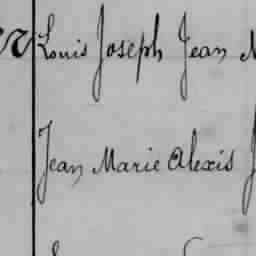 Louis Joseph Jean
Jean Marie Alexis